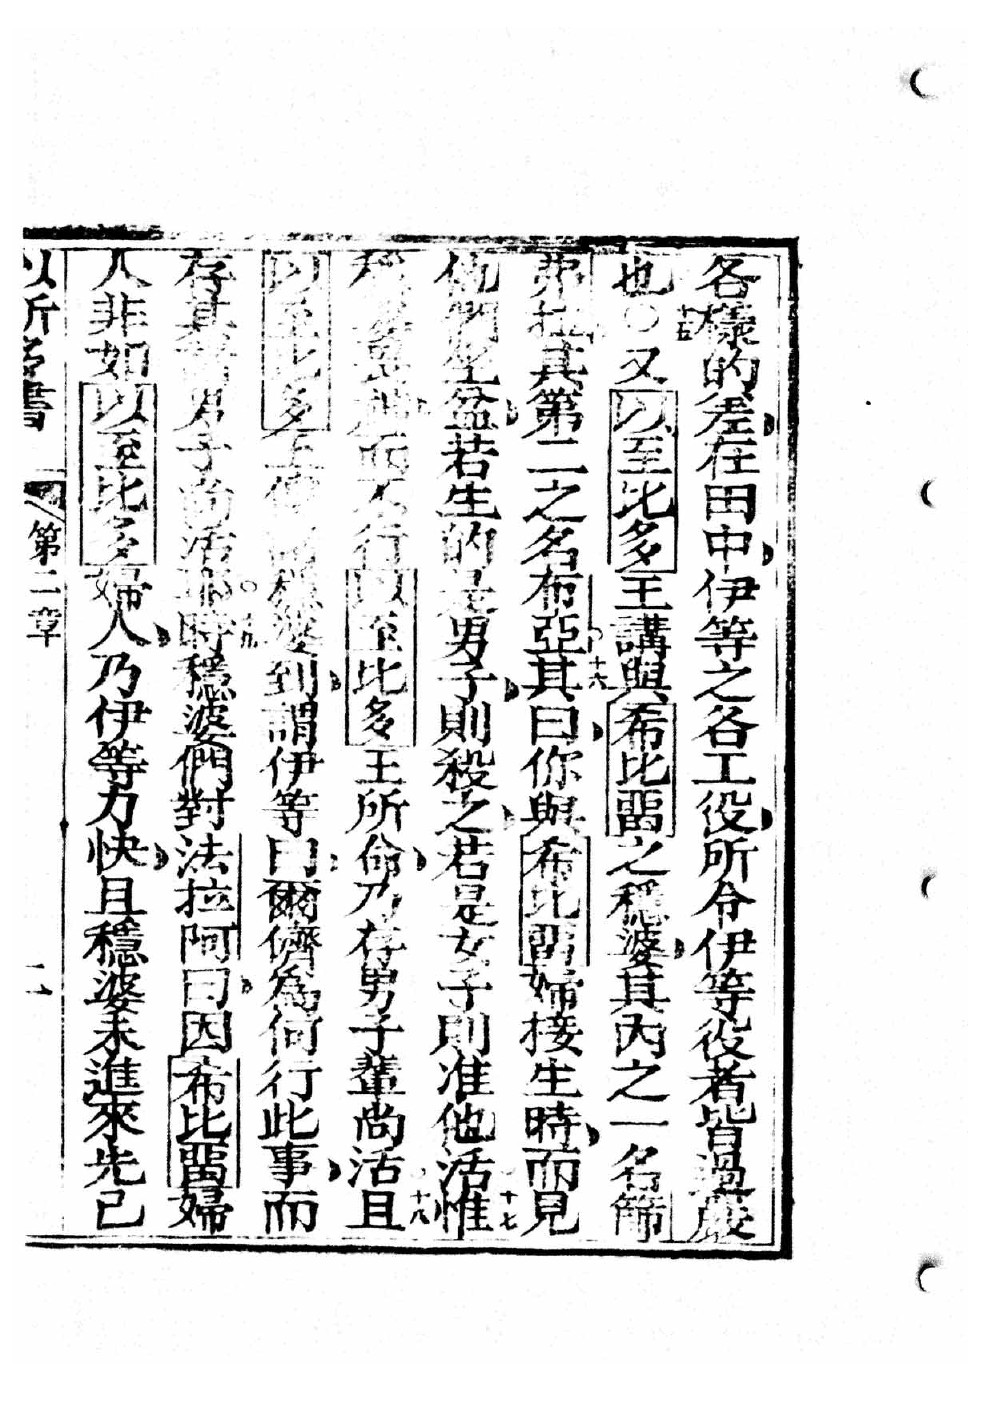 各樣的差在田中伊等之各工役所令伊等役者皆過嚴
也○十五又以至比多王講與希比畱之穩婆其內之一名篩
弗拉其第二之名布亞十六其曰你與希比畱婦接生時而見
他們坐盆若生的是男子則殺之若是女子則准他活十七惟
穩婆而不行以至比多王所命乃存男子輩尚活十八且
以至比多王穩婆到謂伊等曰爾儕為何行此事而
存其男子尚活耶十九時穩婆們對法拉阿曰因希比畱婦
人非如以至比多婦人乃伊等力快且穩婆未進來先已
以所多書 第二章 二